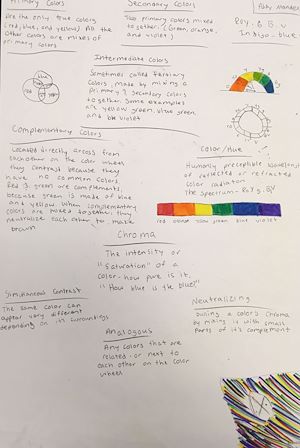 Primary Colors
Are the only true colors
(red, blue, and yellow) All the
other colors are mixes of
primary colors
Secondary Colors
Two primary colors mixed
together. (Green, orange,
and violet)
Roy. G. B. V
Indigo - blue
blue
Intermediate colors
Sometimes called tertiary
colors, made by mixing a
primary & secondary colors
together. Some examples
are yellow green, blue green,
and blue violet
Complementary Colors
Located directly across from
each other on the color wheel
they contrast because they
have no common colors.
Red & green are complements,
because green is made of blue
and yellow. When complementary
colors are mixed together, they
neutralize each other to make
brown
Color/Hue
Humanly perceptible wavelengths
of reflected or refracted
color radiation
The spectrum - Roy g. BV
red orange yellow green blue violet
Chroma
The intensity or
"Saturation" of a
color - how pure is it.
"How blue is the blue?"
Simultaneous Contrast
The same color can
appear very different
depending on its surroundings
Neutralizing
Dulling a color's chroma
by mixing it with small
parts of it's complement
Analogous
Any colors that are
related - or next to
each other on the color
wheel